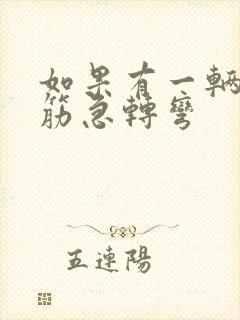 如果有一輛
筋急轉彎
五連陽